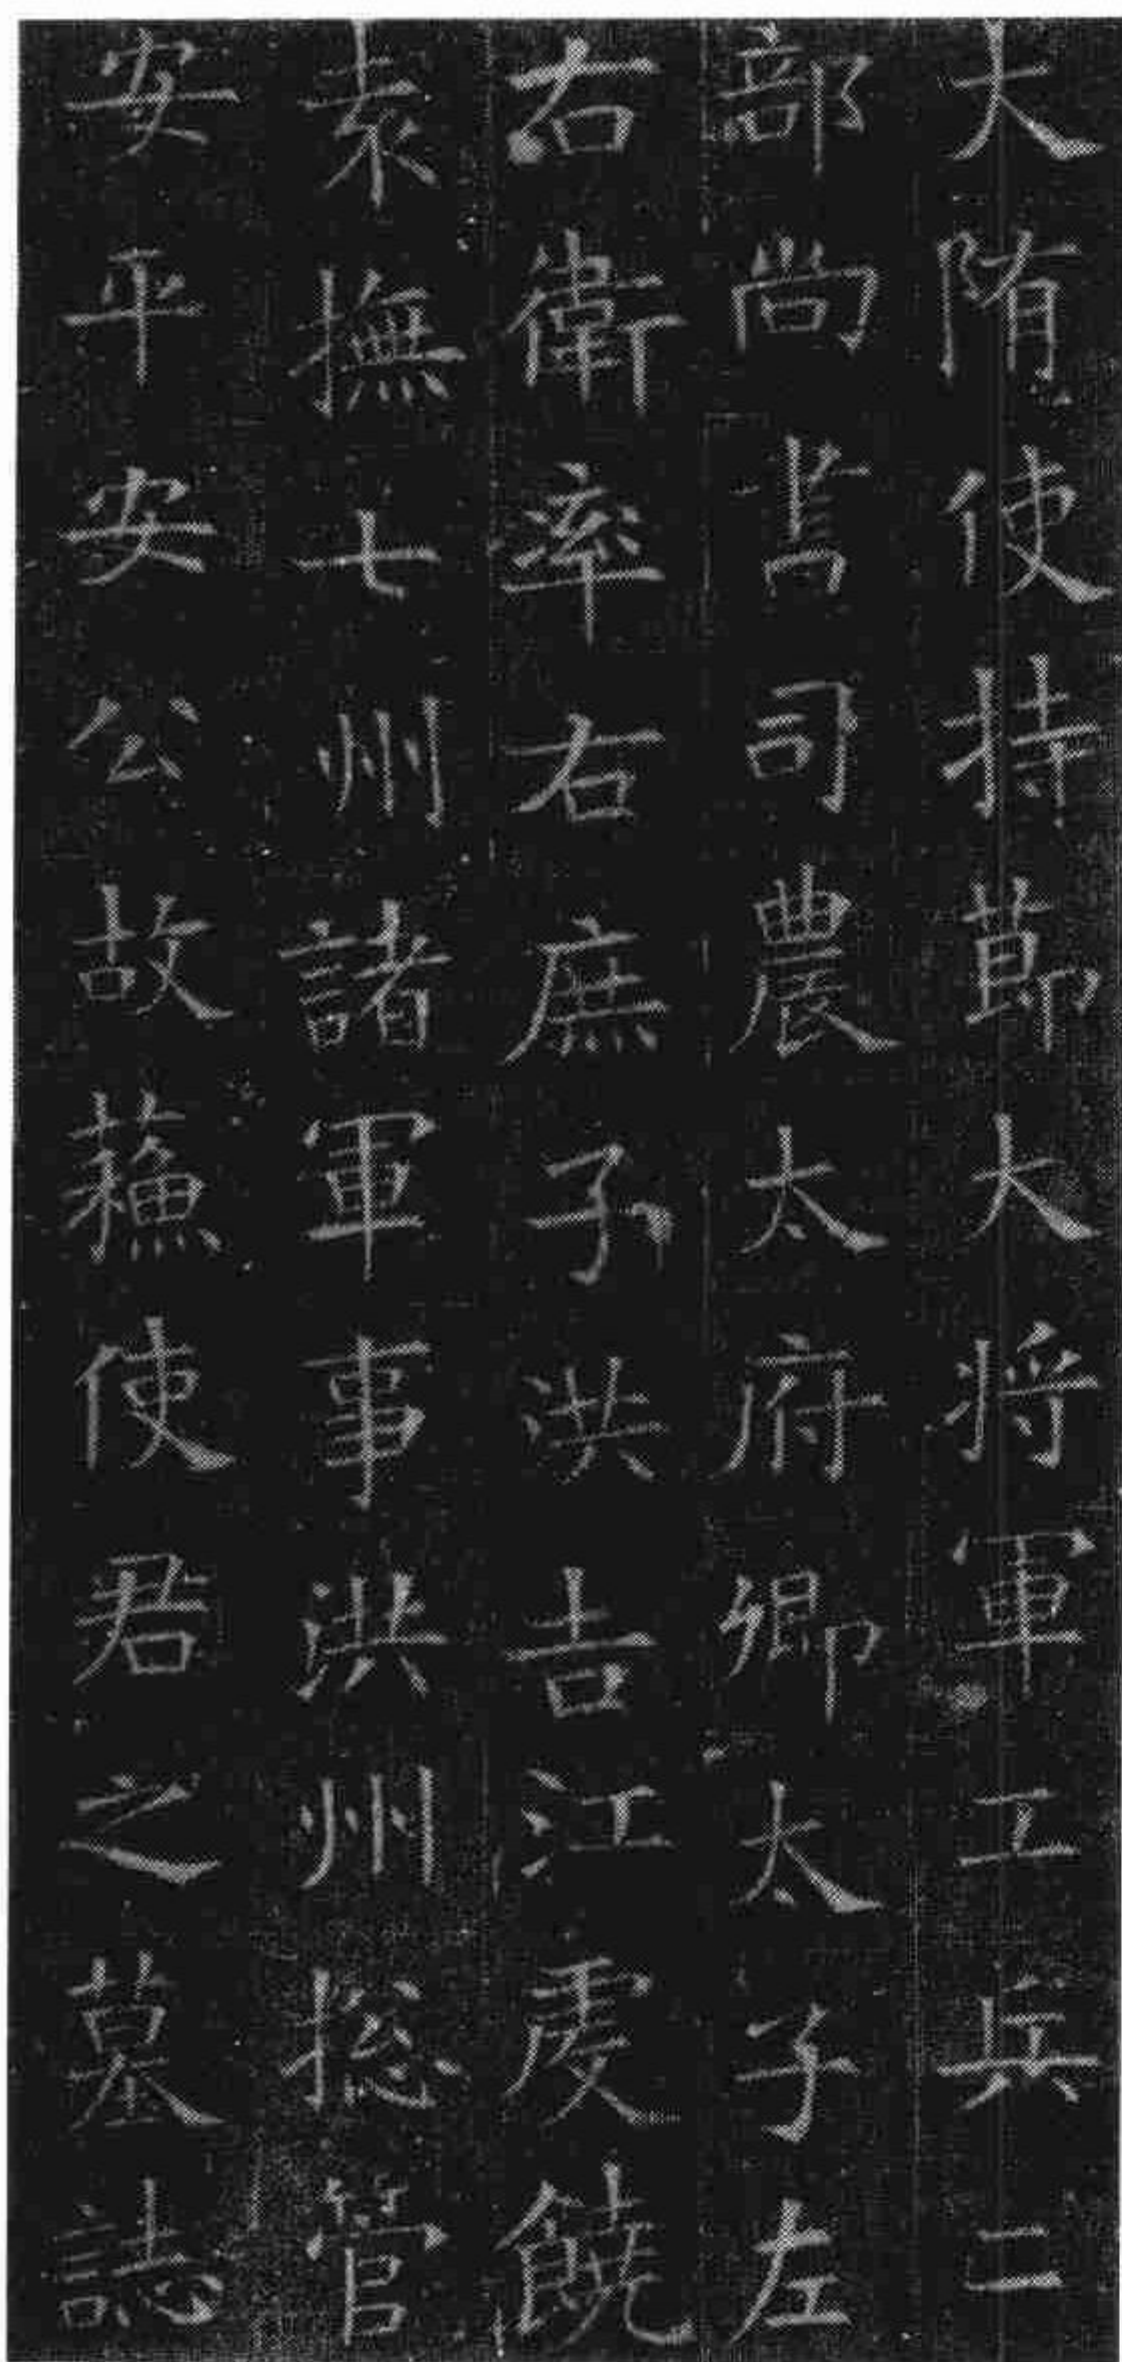 大隋使持節大将軍工兵二
部尚書司農太府卿太子左
右衛率右庶子洪吉江虔饒
袁撫七州諸軍事洪州揔管
安平安公故蘓使君之墓誌